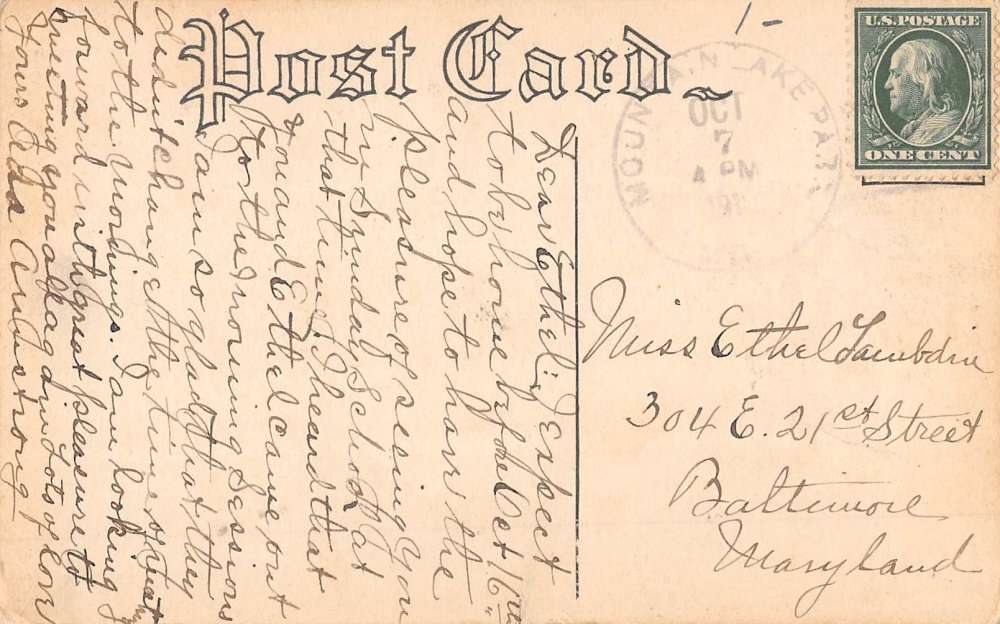 Post Card
1-
MOUNTAIN LAKE PARK
OCT
7
4 PM
191
U.S. POSTAGE
ONE CENT
Dear Ethel:, I expect
to be home before Oct 16th
and hope to have the
pleasure of seeing you
in Sunday School at
that time. I heard that
you and Ethel came out
for the morning sessions
I am so glad that they
did it change the time of
to the mornings. I am looking
forward with great pleasure to
meeting you all again. Lots of love
Yours Ada Armstrong
Miss Ethel Lambdin
304 E. 21st Street
Baltimore
Maryland